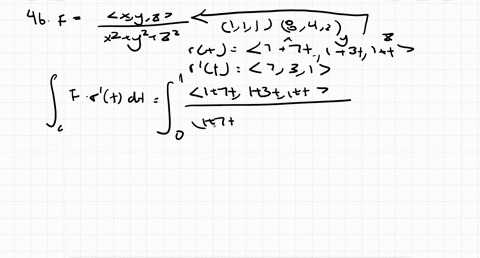 4b. F = <x, y, z> / x² + y² + z² (1,1,1) (8,4,2)
x y z
r(t) = <1+7t, 1+3t, 1+t>
r'(t) = <7, 3, 1>
∫c F · r'(t) dt = ∫₀¹ <1+7t, 1+3t, 1+t> / (1+7t